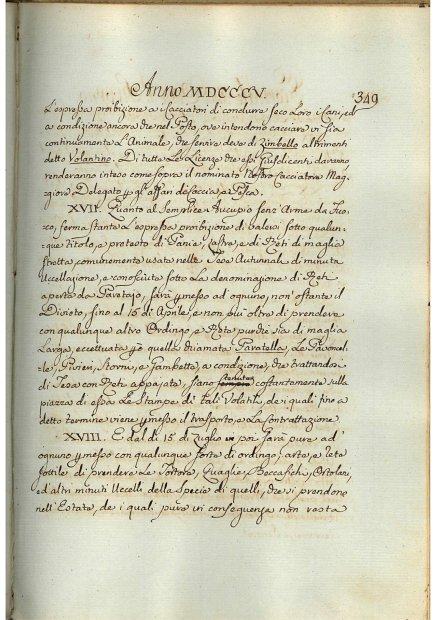 Anno MDCCCV.
349
L'espressa proibizione a i Cacciatori di condurre seco Loro i Cani, ed
a condizione ancora che nel Posto, ove intendono cacciare vi sia
continuamente L'Animale, che servire deve di Zimbello altrimenti
detto Volantino. Di tutte Le Licenze che essi Giusdicenti daranno
renderanno inteso come sopra il nominato Nostro Cacciatore Mag„
giore, Delegato per gli affari di Caccia, e Pesca.
XVII. Quanto al Semplice Aucupio senz'Arme da Fuo„
co, ferma stante L'espressa proibizione di valersi sotto qualun„
que titolo, o pretesto di Panie, e di Reti di maglia
stretta, comunemente usate nelle Tese Autunnali di minuta
Uccellazione, e conosciute sotto La denominazione di Reti
aperte da Paretajo, sarà permesso ad ognuno, non ostante il
Divieto, fino al 15 di Aprile, e non più oltre di prendere
con qualunque altro Ordingo, e Rete purchè sia di maglia
Larga, eccettuata però quella chiamata Paratella, Le Pavoncel„
le, Pivieri, Storni, e Gambette, a condizione, che trattandosi
di Tesa con Reti appajate, siano tenute costantemente sulla
piazza di essa Le Stampe di tali Volatili, de i quali fino a
detto termine viene permesso il trasporto, e La contrattazione.
XVIII. E dal dì 15 di Luglio in poi sarà pure ad
ognuno permesso con qualunque sorta di ordingo, arte, e rete
sottile di prendere Le Tortore, Quaglie, Beccafichi, Ortolani,
ed altri minuti Uccelli della Specie di quelli, che si prendono
nell'Estate, de i quali pure in conseguenza non resta